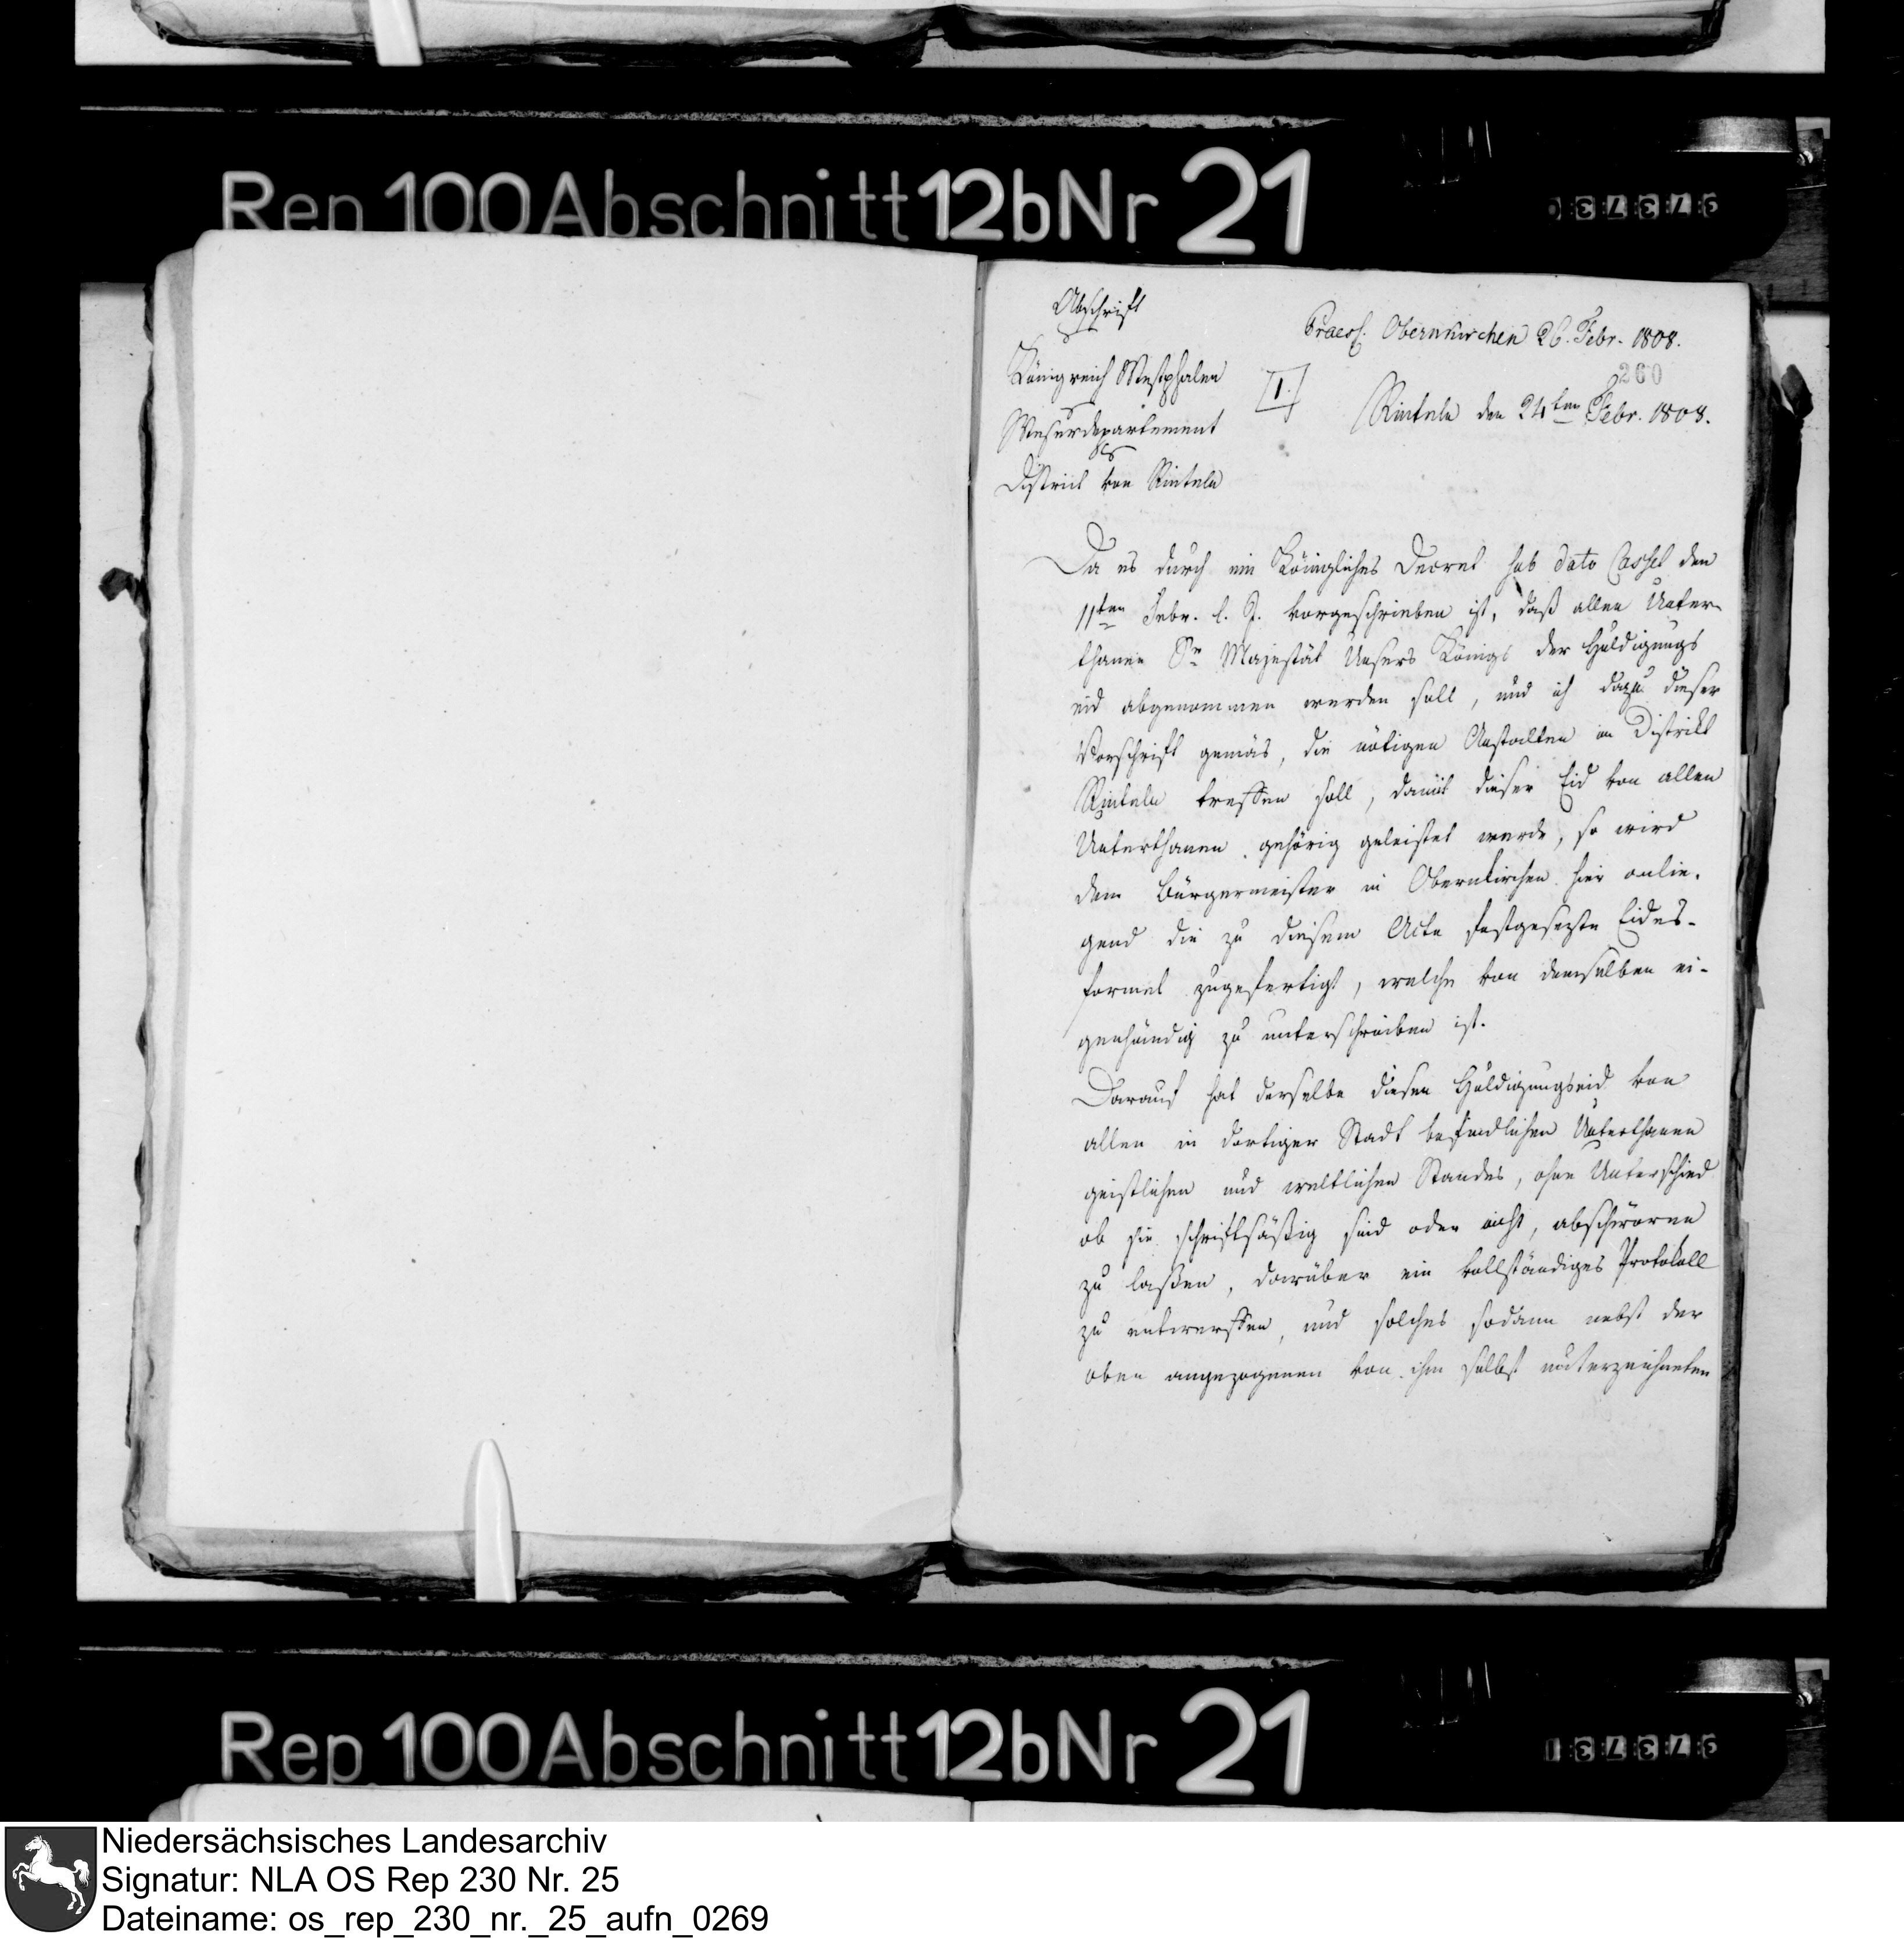 Rep 100 Abschnitt 12b Nr 21
Abschrift
Praes. Obernkirchen 26. Febr. 1808.
260
Königreich Westphalen
I.
Rinteln den 24ten Febr. 1808.
Weserdepartement
District von Rinteln
Da es durch ein Königliches Decret sub dato Cassel den
11ten Febr. l. J. vorgeschrieben ist, daß allen Unter-
thanen Sr Majestät Unsers Königs der Huldigungs
eid abgenommen werden soll, und ich dazu dieser
Vorschrift gemäs, die nötigen Anstalten im Distrikt
Rinteln treffen soll, damit dieser Eid von allen
Unterthanen gehörig geleistet werde, so wird
dem Bürgermeister in Obernkirchen hier anlie-
gend die zu diesem Acte festgesezte Eides-
formel zugefertigt, welche von demselben ei-
genhändig zu unterschreiben ist.
Darauf hat derselbe diesen Huldigungseid von
allen in dortiger Stadt befindlichen Unterthanen
geistlichen und weltlichen Standes, ohne Unterschied
ob sie schriftsäßig sind oder nicht, abschwören
zu laßen, darüber ein vollständiges Protokoll
zu entwerffen, und solches sodann nebst der
oben angezogenen von ihm selbst unterzeichneten
Rep 100 Abschnitt 12b Nr 21
Niedersächsisches Landesarchiv
Signatur: NLA OS Rep 230 Nr. 25
Dateiname: os_rep_230_nr._25_aufn_0269